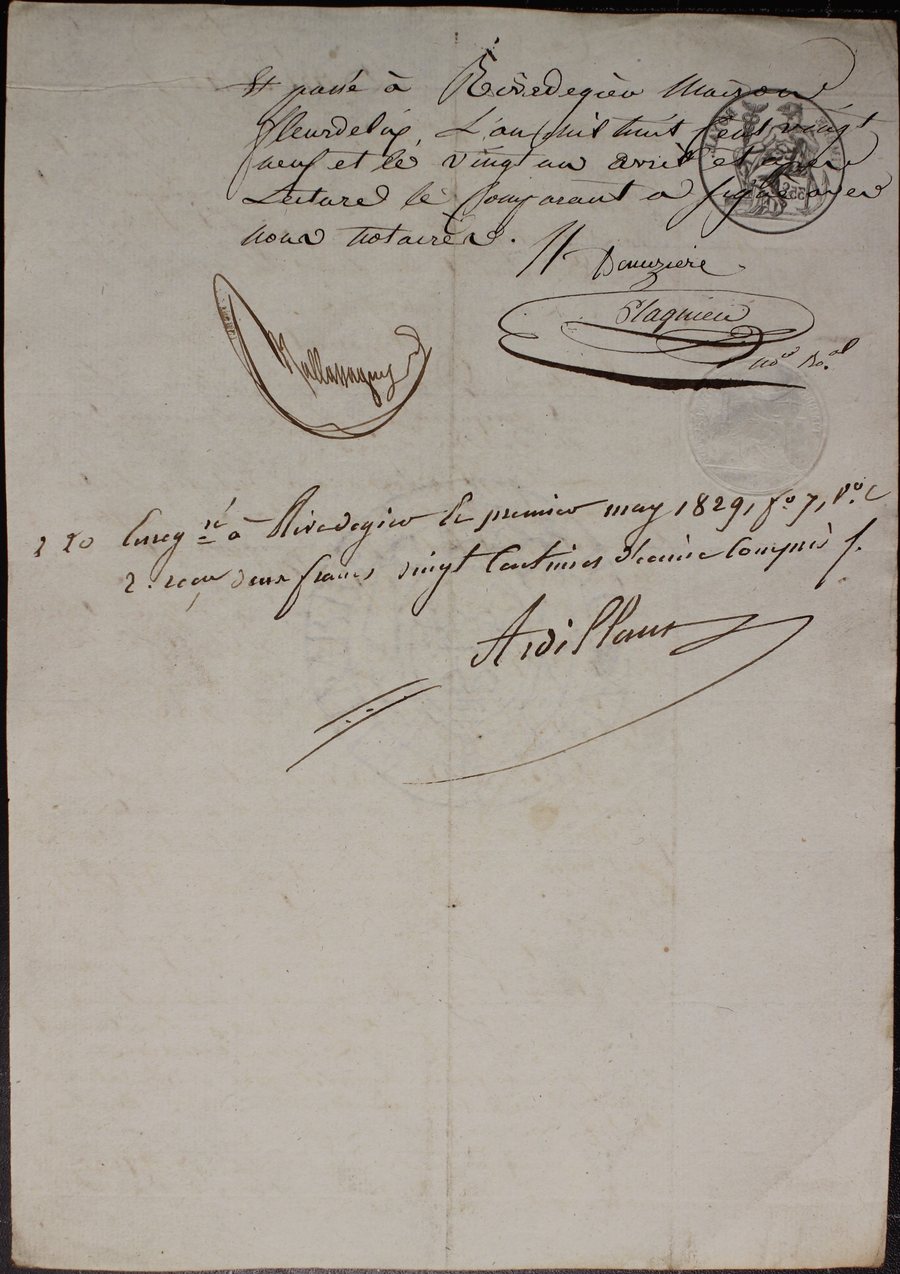 Et passé à Rivedegier Maison
fleurdelix, L'an mil huit cent vingt
neuf et le vingt un avril et apres
Lecture le Comparant a signé avec
nous notaires.
Plaquieu
no.re Ro.al
2 20 Enreg.ré à Rivedegier le premier may 1829, f.o 7, v.o c
2. reçu deux francs vingt Centimes décime Compris f.
Ardillaux